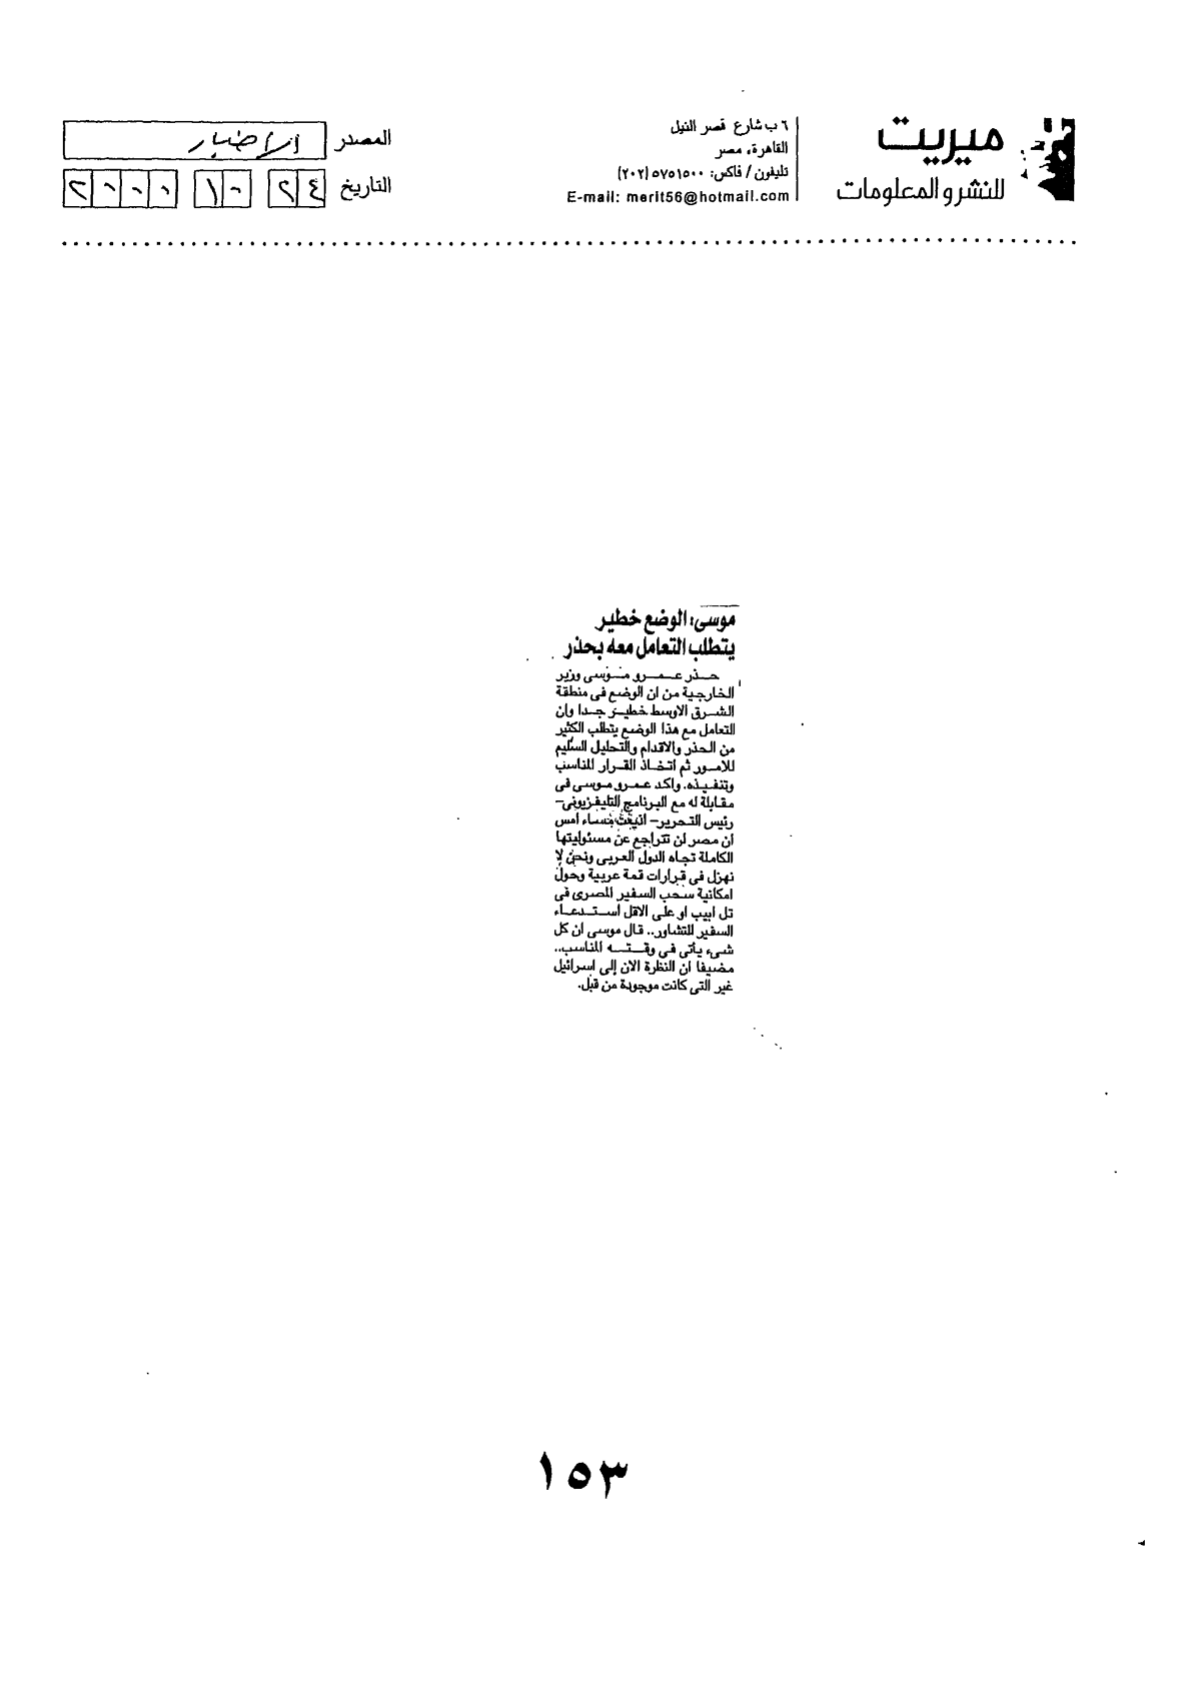 ميريت
للنشر والمعلومات
٦ ب شارع قصر النيل
القاهرة، مصر
تليفون / فاكس: ٥٧٥١٥٠٠ (٢٠٢)
E-mail: merit56@hotmail.com
المصدر الاخبار
التاريخ ٢٤ ١٠ ٢٠٠٠
موسى: الوضع خطير
يتطلب التعامل معه بحذر
حذر عمرو موسى وزير
الخارجية من ان الوضع فى منطقة
الشرق الاوسط خطير جدا وان
التعامل مع هذا الوضع يتطلب الكثير
من الحذر والاقدام والتحليل السليم
للامور ثم اتخاذ القرار المناسب
وتنفيذه. واكد عمرو موسى فى
مقابلة له مع البرنامج التليفزيونى-
رئيس التحرير- اذيعت مساء امس
ان مصر لن تتراجع عن مسئوليتها
الكاملة تجاه الدول العربى ونحن لا
نهزل فى قرارات قمة عربية وحول
امكانية سحب السفير المصرى فى
تل ابيب او على الاقل استدعاء
السفير للتشاور.. قال موسى ان كل
شىء يأتى فى وقته المناسب..
مضيفا ان النظرة الان إلى اسرائيل
غير التى كانت موجودة من قبل.
١٥٣